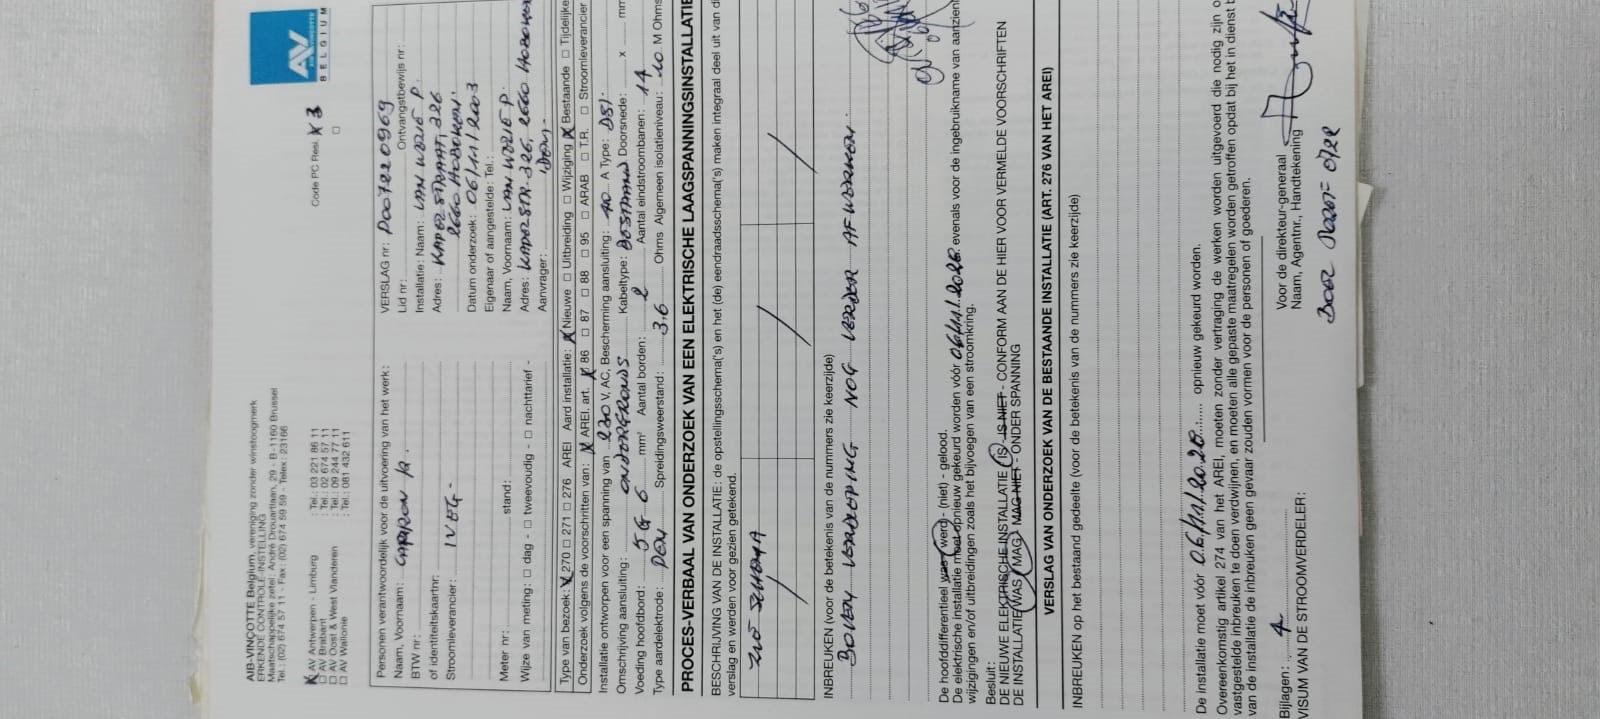 AIB-VINÇOTTE Belgium, vereniging zonder winstoogmerk
ERKENDE CONTROLE-INSTELLING
Maatschappelijke zetel: André Drouartlaan, 29 - B-1160 Brussel
Tel.: (02) 674 57 11 - Fax: (02) 674 59 59 - Telex: 23166
AV
AIB VINÇOTTE
BELGIUM
X AV Antwerpen - Limburg : Tel.: 03 221 86 11
□ AV Brabant : Tel.: 02 674 57 11
□ AV Oost & West Vlaanderen : Tel.: 09 244 77 11
□ AV Wallonie : Tel.: 081 432 611
Code PC Resi. X 3
□
Personen verantwoordelijk voor de uitvoering van het werk:
Naam, Voornaam:
BTW nr:
of identiteitskaartnr:
Stroomleverancier: IVEG -
Meter nr: stand:
Wijze van meting: □ dag - □ tweevoudig - □ nachttarief -
VERSLAG nr: P007220969
Lid nr: Ontvangstbewijs nr:
Installatie: Naam: P.
Adres: 326
2660 HOBOKEN
Datum onderzoek: 06/11/2003
Eigenaar of aangestelde: Tel.:
Naam, Voornaam: P.
Adres: 326, 2660 HOBOKEN
Aanvrager: IDEM -
Type van bezoek: X 270 □ 271 □ 276 AREI Aard installatie: X Nieuwe □ Uitbreiding □ Wijziging X Bestaande □ Tijdelijke
Onderzoek volgens de voorschriften van: X AREI. art. X 86 □ 87 □ 88 □ 95 □ ARAB □ T.R. □ Stroomleverancier
Installatie ontworpen voor een spanning van 230 V, AC, Bescherming aansluiting: 40 A Type:
Omschrijving aansluiting: ONDERGRONDS Kabeltype: BESTAAND Doorsnede: x mm
Voeding hoofdbord: 5G 6 mm² Aantal borden: 2 Aantal eindstroombanen: 14
Type aardelektrode: PEN Spreidingsweerstand: 3.6 Ohms Algemeen isolatieniveau: 10 M Ohms
PROCES-VERBAAL VAN ONDERZOEK VAN EEN ELEKTRISCHE LAAGSPANNINGSINSTALLATIE
BESCHRIJVING VAN DE INSTALLATIE: de opstellingsschema('s) en het (de) eendraadsschema('s) maken integraal deel uit van di
verslag en werden voor gezien getekend.
ZIE SCHEMA
INBREUKEN (voor de betekenis van de nummers zie keerzijde)
BOVEN VERDIEPING NOG VERDER AFWERKEN.
De hoofddifferentieel was (werd) - (niet) - gelood.
De elektrische installatie moet opnieuw gekeurd worden vóór 06/11/2028 evenals voor de ingebruikname van aanzien
wijzigingen en/of uitbreidingen zoals het bijvoegen van een stroomkring.
Besluit:
DE NIEUWE ELEKTRISCHE INSTALLATIE IS - IS NIET - CONFORM AAN DE HIER VOOR VERMELDE VOORSCHRIFTEN
DE INSTALLATIE WAS / MAG / MAG NIET - ONDER SPANNING
VERSLAG VAN ONDERZOEK VAN DE BESTAANDE INSTALLATIE (ART. 276 VAN HET AREI)
INBREUKEN op het bestaand gedeelte (voor de betekenis van de nummers zie keerzijde)
De installatie moet vóór 06/11/2028 opnieuw gekeurd worden.
Overeenkomstig artikel 274 van het AREI, moeten zonder vertraging de werken worden uitgevoerd die nodig zijn o
vastgestelde inbreuken te doen verdwijnen, en moeten alle gepaste maatregelen worden getroffen opdat bij het in dienst b
van de installatie de inbreuken geen gevaar zouden vormen voor de personen of goederen.
Bijlagen: 4
VISUM VAN DE STROOMVERDELER:
Voor de direkteur-generaal
Naam, Agentnr., Handtekening